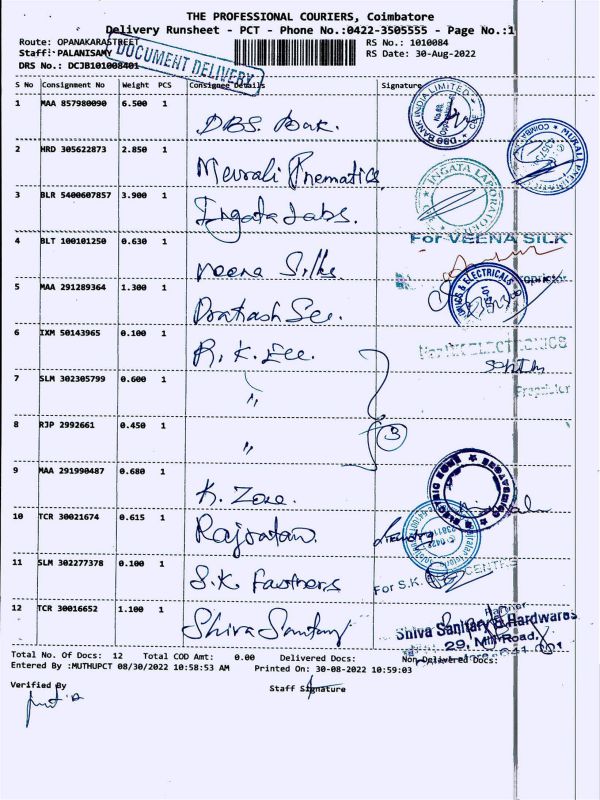 THE PROFESSIONAL COURIERS, Coimbatore
Delivery Runsheet - PCT - Phone No.:0422-3505555 - Page No.:1
Route: OPANAKARASTREET
RS No.: 1010084
Staff: PALANISAMY
RS Date: 30-Aug-2022
DRS No.: DCJB101008401
DOCUMENT DELIVERY
S No Consignment No Weight PCS Consignee Details Signature
1 MAA 857980090 6.500 1 DBS. Bak.
DBS BANK INDIA LIMITED
2 HRD 305622873 2.850 1 Meurali Pnematics
MURALI
3 BLR 5400607857 3.900 1 Ingata Labs.
4 BLT 100101250 0.630 1 Neena Silks
For VEENA SILK
Proprietor
5 MAA 291289364 1.300 1
6 IXM 50143965 0.100 1 R.K. Ele.
ELECTRONICS
7 SLM 302305799 0.600 1 "
Proprietor
8 RJP 2992661 0.450 1 "
3
9 MAA 291990487 0.680 1 K. Zone.
10 TCR 30021674 0.615 1 Rajratan
11 SLM 302277378 0.100 1 S.K. Fasthers
For S.K.
12 TCR 30016652 1.100 1 Shiva Sanitary
Partner
Shiva Sanitary & Hardwares
29, Mill Road,
Total No. Of Docs: 12 Total COD Amt: 0.00 Delivered Docs: Non-Delivered Docs:
Entered By :MUTHUPCT 08/30/2022 10:58:53 AM Printed On: 30-08-2022 10:59:03
Verified By
Staff Signature